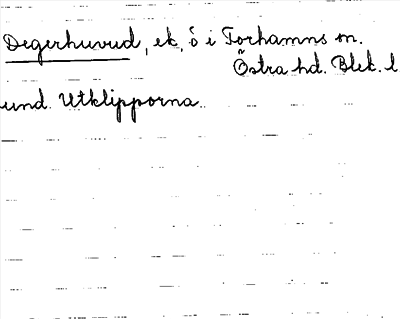 Degerhuvud, ek. ö i Torhamns sn.
Östra hd. Blek. l
und. Utklipporna.